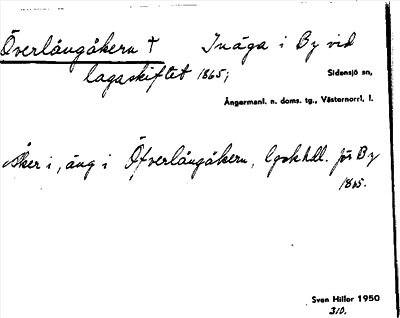 Överlångåkern † Inäga i By vid
lagaskiftet 1865;
Sidensjö sn,
Ångermanl. n. doms. tg., Västernorrl. l.
Åker i, äng i Öfverlångåkern, lgskhdl. för By
1865.
Sven Hiller 1950
310.